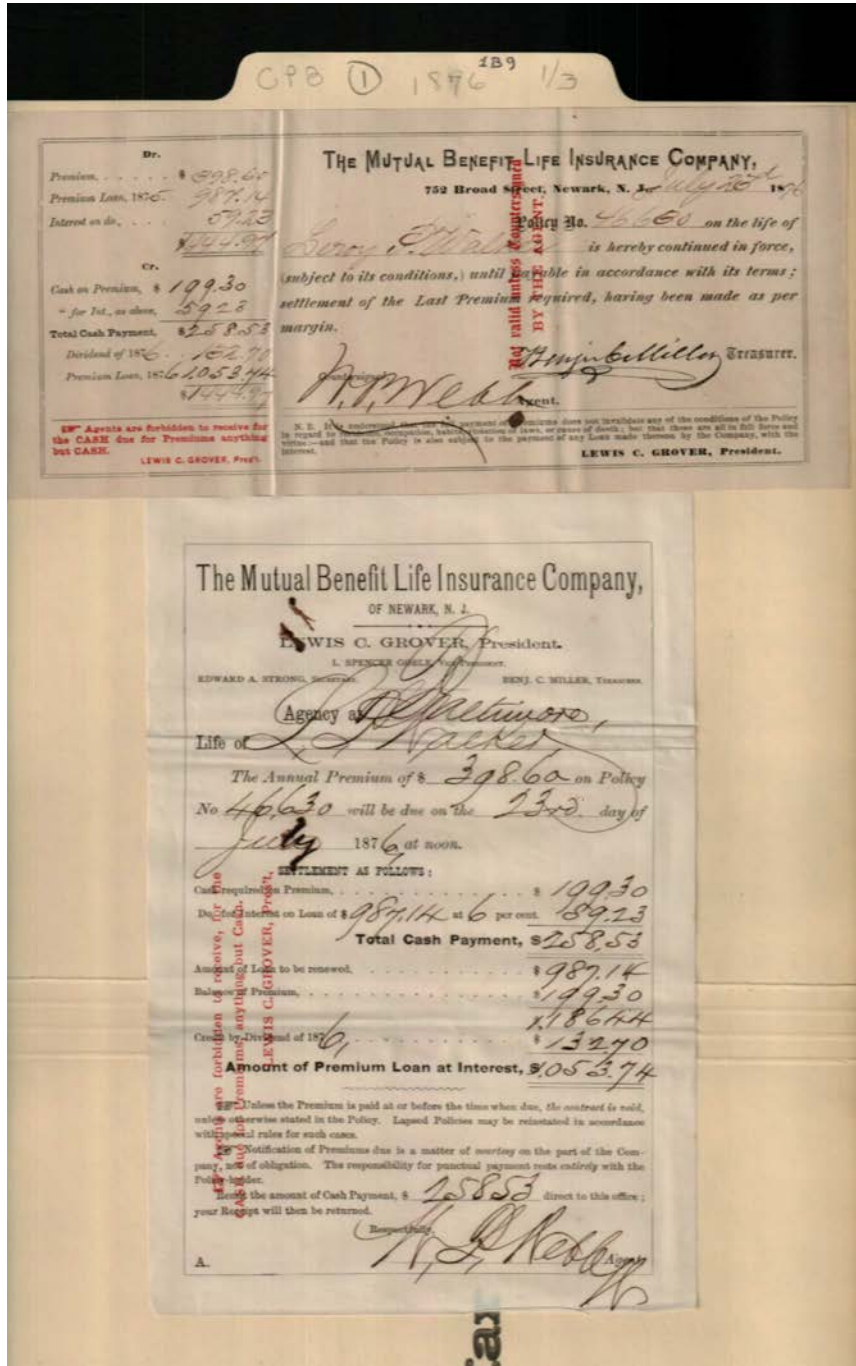 CPB ① 1876 1B9 1/3
Dr.
Premium, . . . . . $ 398.60
Premium Loan, 1875. 987.14
Interest on do., . . . 59.23
$1444.97
Cr.
Cash on Premium, $ 199.30
" for Int., as above, 59.23
Total Cash Payment, $258.53
Dividend of 1876. 132.70
Premium Loan, 1876 1,053.74
$1444.97
☞ Agents are forbidden to receive for
the CASH due for Premiums anything
but CASH.
LEWIS C. GROVER, Pres't.
THE MUTUAL BENEFIT LIFE INSURANCE COMPANY,
752 Broad Street, Newark, N. J. July 23d 1876
Policy No. 46630 on the life of
Leroy P. Walker is hereby continued in force,
(subject to its conditions,) until payable in accordance with its terms;
settlement of the Last Premium required, having been made as per
margin.
Benj. C. Miller Treasurer.
Webb Agent.
Not valid unless Countersigned
BY THE AGENT.
N. B. It is understood that the payment of Premiums does not invalidate any of the conditions of the Policy
in regard to residence, occupation, habits, violation of laws, or cause of death; but that these are all in full force and
virtue:—and that the Policy is also subject to the payment of any Loan made thereon by the Company, with the
interest.
LEWIS C. GROVER, President.
The Mutual Benefit Life Insurance Company,
OF NEWARK, N. J.
LEWIS C. GROVER, President.
L. SPENCER GOBLE, Vice President.
EDWARD A. STRONG, Secretary. BENJ. C. MILLER, Treasurer.
Agency at Baltimore,
Life of L. P. Walker,
The Annual Premium of $ 398.60 on Policy
No 46,630 will be due on the 23rd. day of
July 1876, at noon.
SETTLEMENT AS FOLLOWS:
Cash required on Premium, . . . $ 199.30
Do. for Interest on Loan of $987.14 at 6 per cent. 59.23
Total Cash Payment, $258.53
Amount of Loan to be renewed, . . . $987.14
Balance of Premium, . . . $199.30
1,186.44
Credit by Dividend of 1876, $132.70
Amount of Premium Loan at Interest, $1,053.74
☞ Unless the Premium is paid at or before the time when due, the contract is void,
unless otherwise stated in the Policy. Lapsed Policies may be reinstated in accordance
with special rules for such cases.
☞ Notification of Premiums due is a matter of courtesy on the part of the Com-
pany, not of obligation. The responsibility for punctual payment rests entirely with the
Policy-holder.
Remit the amount of Cash Payment, $ 258.53 direct to this office;
your Receipt will then be returned.
Respectfully,
Webb Agent
A.
☞ Agents are forbidden to receive, for the
CASH due for Premiums, anything but Cash.
LEWIS C. GROVER, Pres't.